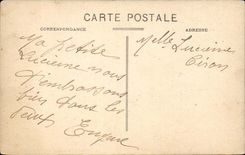 CARTE POSTALE
CORRESPONDANCE
ADRESSE
Ma Petite
Lucienne nous
t'embrassons
bien tous les
deux
Melle Lucienne